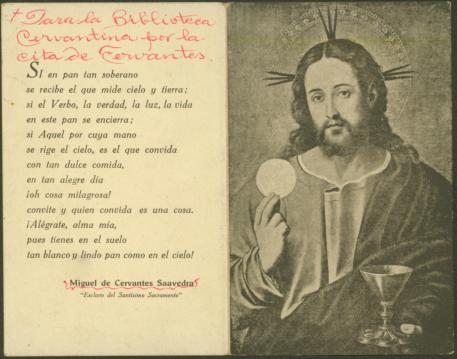 + Para la Biblioteca
Cervantina por la
cita de Cervantes.
SI en pan tan soberano
se recibe el que mide cielo y tierra;
si el Verbo, la verdad, la luz, la vida
en este pan se encierra;
si Aquel por cuya mano
se rige el cielo, es el que convida
con tan dulce comida,
en tan alegre día
¡oh cosa milagrosa!
convite y quien convida es una cosa.
¡Alégrate, alma mía,
pues tienes en el suelo
tan blanco y lindo pan como en el cielo!
Miguel de Cervantes Saavedra
"Esclavo del Santísimo Sacramento"